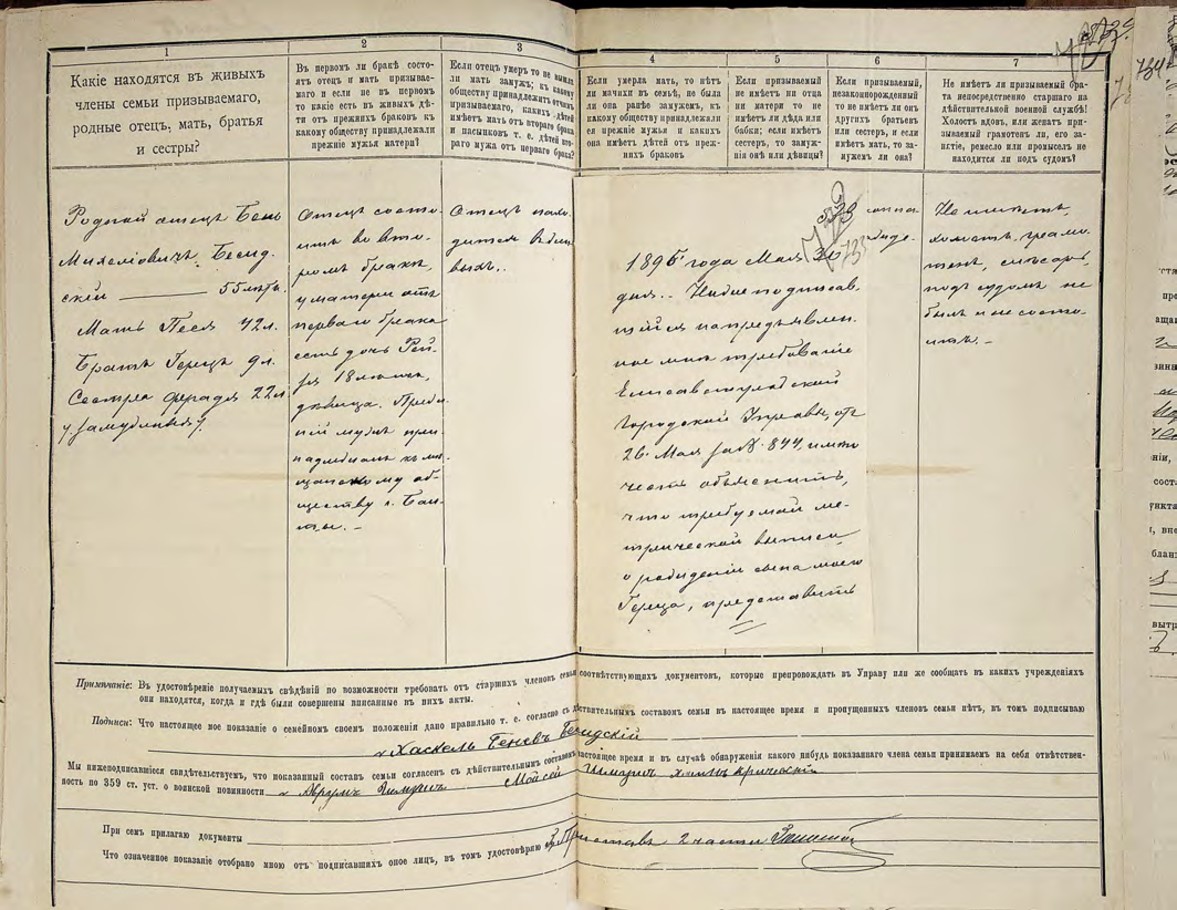 1
Какіе находятся въ живыхъ
члены семьи призываемаго,
родные отецъ, мать, братья
и сестры?
2
Въ первомъ ли бракѣ состо-
ятъ отецъ и мать призывае-
маго и если не въ первомъ
то какіе есть въ живыхъ дѣ-
ти отъ прежнихъ браковъ къ
какому обществу принадлежали
прежніе мужья матери?
3
Если отецъ умеръ то не вышла
ли мать замужъ; къ какому
обществу принадлежитъ отчимъ
призываемаго, какихъ дѣтей
имѣетъ мать отъ втораго брака
и пасынковъ т. е. дѣтей вто-
раго мужа отъ перваго брака?
4
Если умерла мать, то нѣтъ
ли мачихи въ семьѣ, не была
ли она ранѣе замужемъ, къ
какому обществу принадлежали
ея прежніе мужья и какихъ
она имѣетъ дѣтей отъ преж-
нихъ браковъ
5
Если призываемый
не имѣетъ ни отца
ни матери то не
имѣетъ ли дѣда или
бабки; если имѣетъ
сестеръ, то замуж-
нія онѣ или дѣвицы?
6
Если призываемый,
незаконнорожденный
то не имѣетъ ли онъ
другихъ братьевъ
или сестеръ, и если
имѣетъ мать, то за-
мужемъ ли она?
7
Не имѣетъ ли призываемый бра-
та непосредственно старшаго на
дѣйствительной военной службѣ!
Холостъ вдовъ, или женатъ при-
зываемый грамотенъ ли, его за-
нятіе, ремесло или промыселъ не
находится ли подъ судомъ?
734
Родной отецъ Бень
Михелiовичъ Бесид-
скій 55 лѣтъ
Мать Песя 42 л.
Братъ Герцъ 9 л.
Сестра Фрадя 22 л
Отецъ состо-
итъ во вто-
ромъ бракѣ,
у матери отъ
перваго брака
есть дочь Рей-
зя 18 лѣтъ,
дѣвица. Преж-
ній мужъ при-
надлежалъ къ мѣ-
щанскому об-
ществу г. Бал-
ты. -
Отецъ нахо-
дится въ жи-
выхъ..
733
1896 года Мая 30
дня.. Ниже подписав-
шійся на предъявлен-
ное мнѣ требованіе
Елисаветградской
Городской Управы, отъ
26 Мая за № 844, имѣю
честь объяснить,
что требуемой ме-
трической выписи
о рожденіи сына моего
Герца, представить
Не имѣетъ,
холостъ, грамо-
тенъ, слѣсарь,
подъ судомъ не
былъ и не состо-
итъ. -
Примѣчаніе: Въ удостовѣреніе получаемыхъ свѣдѣній по возможности требовать отъ старшихъ членовъ семьи соотвѣтствующихъ документовъ, которые препровождать въ Управу или же сообщать въ какихъ учрежденіяхъ
они находятся, когда и гдѣ были совершены вписанные въ нихъ акты.
Подписи: Что настоящее мое показаніе о семейномъ своемъ положеніи дано правильно т. е. согласно съ дѣйствительнымъ составомъ семьи въ настоящее время и пропущенныхъ членовъ семьи нѣтъ, въ томъ подписываю
Хаскель Беневъ Бесидскій
Мы нижеподписавшіеся свидѣтельствуемъ, что показанный составъ семьи согласенъ съ дѣйствительнымъ составомъ настоящее время и въ случаѣ обнаруженія какого нибудь показаннаго члена семьи принимаемъ на себя отвѣтствен-
ность по 359 ст. уст. о воинской повинности Аврумъ Мойсей
При семъ прилагаю документы
Что означенное показаніе отобрано мною отъ подписавшихъ оное лицъ, въ томъ удостовѣряю Приставъ 2 части